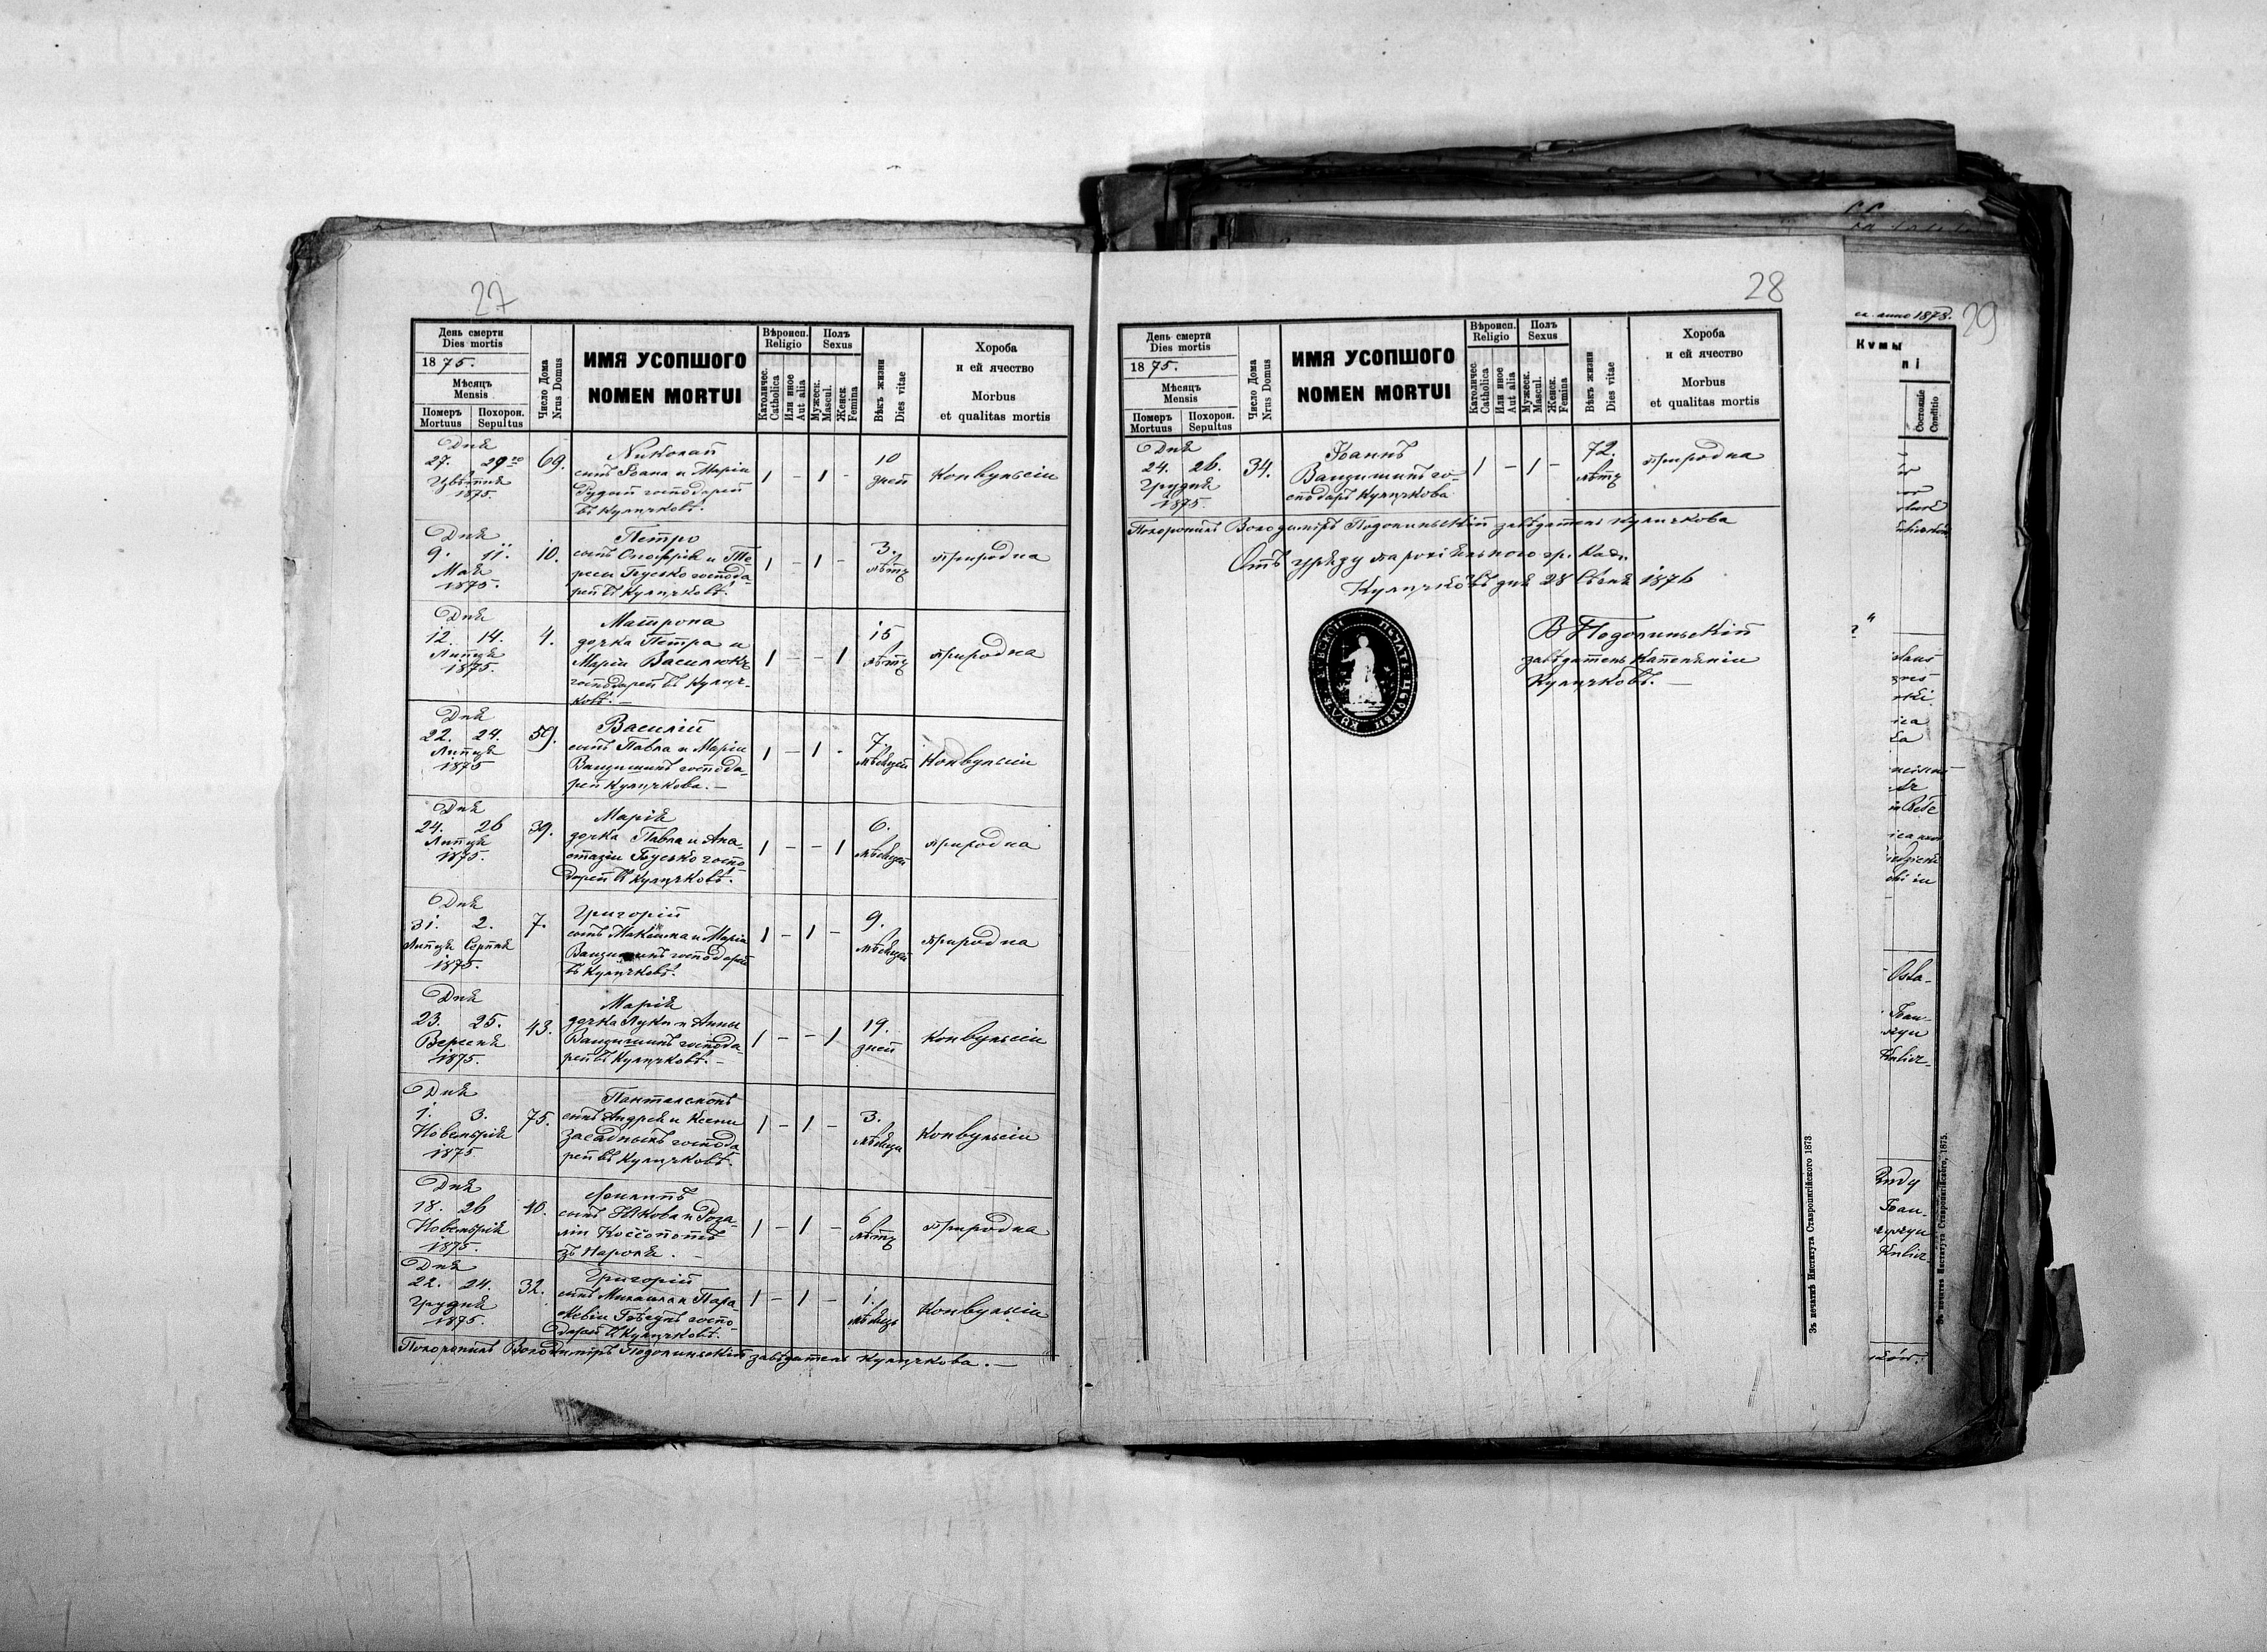 27
День смерти
Dies mortis
1875.
Мѣсяцъ
Mensis
Померъ
Mortuus
Похорон.
Sepultus
Число Дома
Nrus Domus
ИМЯ УСОПШОГО
NOMEN MORTUI
Вѣроисп.
Religio
Католичес.
Catholica
Или иное
Aut alia
Полъ
Sexus
Мужеск.
Mascul.
Женск.
Femina
Вѣкъ жизни
Dies vitae
Хороба
и ей ячество
Morbus
et qualitas mortis
Дня
27. 29го
Цвѣтня
1875.
69.
Николай
сынъ Іоана и Маріи
Рудый господарей
въ Куличковѣ.
1 - 1 -
10
дней
Конвульсіи
Дня
9. 11.
Мая
1875.
10.
Петро
сынъ Онофрія и Те-
ресы Гусько господа-
рей въ Куличковѣ.
1 - 1 -
3.
лѣтъ
природна
Дня
12. 14.
Липця
1875.
4.
Матрона
дочка Петра и
Маріи Василюкъ
господарей въ Кулич-
ковѣ. —
1 - - 1
15
лѣтъ
природна
Дня
22. 24.
Липця
1875
59.
Василій
сынъ Павла и Маріи
господа-
рей Куличкова. —
1 - 1 -
7.
мѣсяцей
Конвульсіи
Дня
24. 26
Липця
1875.
39.
Марія
дочка Павла и Ана-
стазіи Гусько госпо-
дарей въ Куличковѣ.
1 - - 1
6.
мѣсяцей
природна
Дня
31. 2.
Липця Серпня
1875.
7.
Григорій
сынъ Максима и Маріи
господарей
въ Куличковѣ.
1 - 1 -
9.
мѣсяцей
природна
Дня
23. 25.
Вересня
1875.
43.
Марія
дочка Луки и Анны
господа-
рей въ Куличковѣ. —
1 - - 1
19.
дней
Конвульсіи
Дня
1. 3.
Новембрія
1875
75.
Панталемонъ
сынъ Андрея и Ксени
Засадныхъ господа
рей въ Куличковѣ.
1 - 1 -
3.
мѣсяци
Конвульсіи
Дня
18. 26
Новембрія
1875.
40.
сынъ Якова и Роза-
ліи
зъ Нароля. —
1 - 1 -
6
лѣтъ
природна
Дня
22. 24.
Грудня
1875.
32.
Григорій
сынъ Михаила и Пара
скевіи госпо-
дарей въ Куличковѣ.
1 - 1 -
1.
мѣсяцъ
Конвульсіи
Похоронилъ Володимiръ Подолиньскій завѣдатель Куличкова. —
28
День смерти
Dies mortis
1875.
Мѣсяцъ
Mensis
Померъ
Mortuus
Похорон.
Sepultus
Число Дома
Nrus Domus
ИМЯ УСОПШОГО
NOMEN MORTUI
Вѣроисп.
Religio
Католичес.
Catholica
Или иное
Aut alia
Полъ
Sexus
Мужеск.
Mascul.
Женск.
Femina
Вѣкъ жизни
Dies vitae
Хороба
и ей ячество
Morbus
et qualitas mortis
Дня
24. 26.
Грудня
1875.
34.
Іоаннъ
го-
сподарь Куличкова
1 - 1 -
72.
лѣтъ
природна
Похоронилъ Володимiръ Подолиньскій завѣдатель Куличкова
Отъ уряду парохіяльного гр. кат.
Куличковъ дня 28 Сѣчня 1876
В Подолиньскій
завѣдатель Капеляніи
Куличковъ. —
ПЕЧАТЬ ЦЕРКВИ
Зъ печатнѣ Института Ставропигійского 1873
29
anno 1878.
Кумы
Состояніе
Conditio
Зъ печатнѣ Института Ставропигійского, 1875.